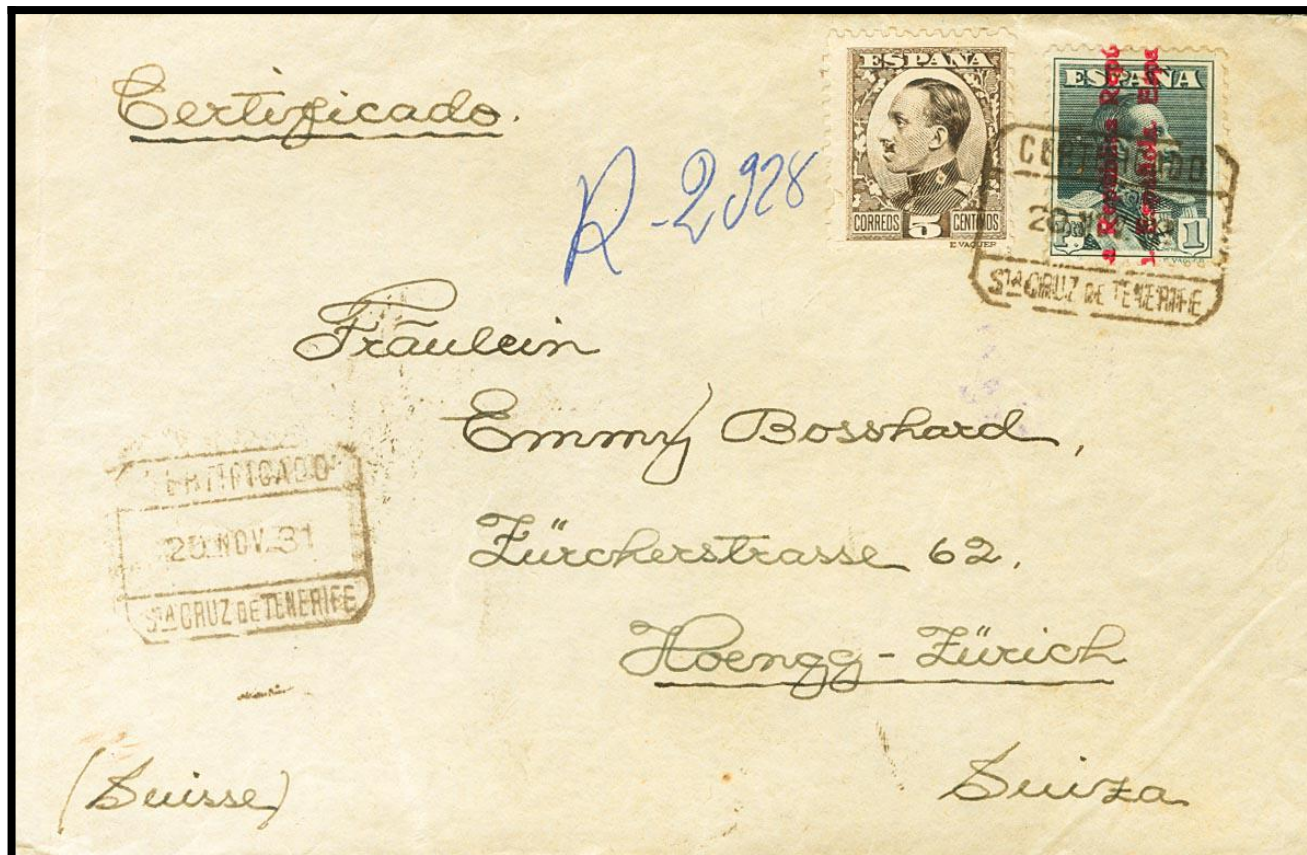 Certificado.
R-2928
ESPAÑA
CORREOS 5 CENTIMOS
E. VAQUER
ESPAÑA
1
a República Repú
Española. Espa
CERTIFICADO
STA CRUZ DE TENERIFE
Fräulein
Emmy Bosshard,
Zürcherstrasse 62.
Hoengg-Zürich
Suiza
(Suisse)
ERTIFICADO
20 NOV. 31
STA CRUZ DE TENERIFE